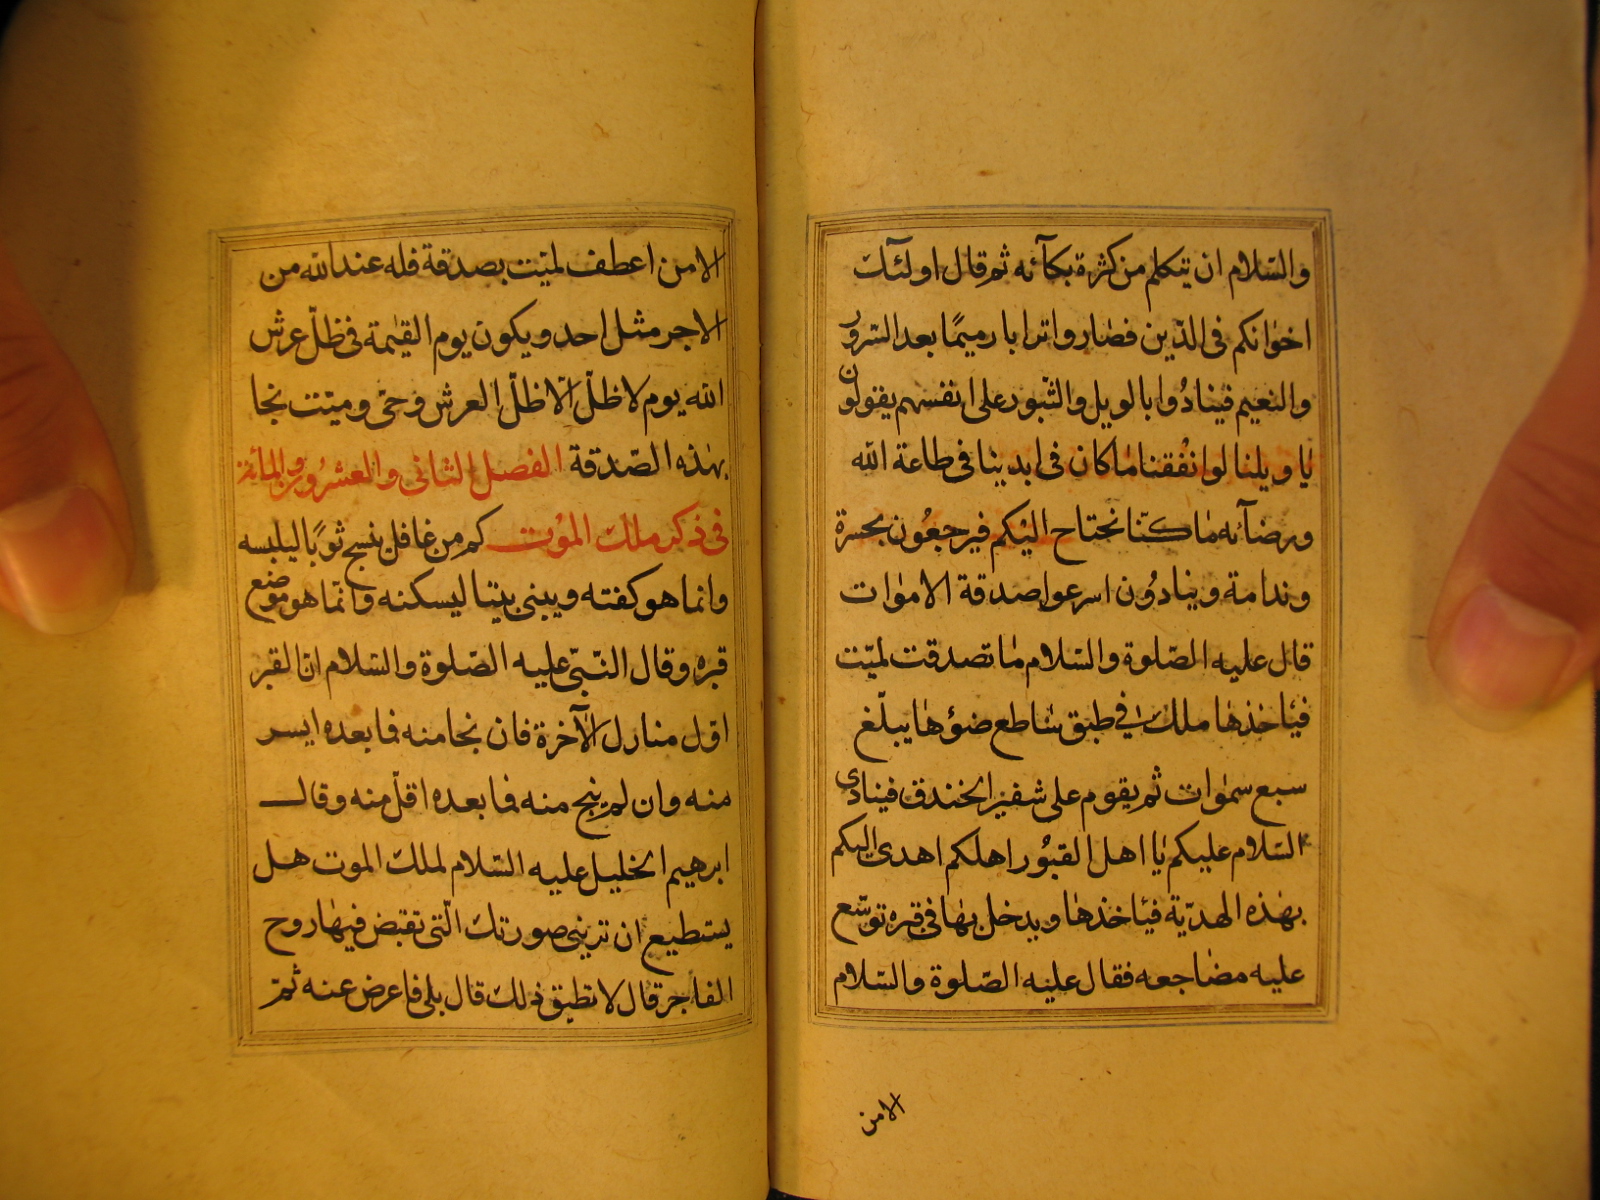 والسّلام ان يتكلم من كثرة بكآئه ثم قال اولئك
اخوانكم فى الذين فصاروا ترابا رميمًا بعد السرور
والنعيم فينادُوا بالويل والثّبور على انفسهم يقولون
يا ويلنا لو انفقنا ما كان فى ايدينا فى طاعة الله
ورضآئه ما كنّا نحتاح اليكم فيرجعُون بحسرة
وندامة وينادُون اسرعوا صدقة الاموات
قال عليه الصّلوة والسّلام ما تصدقت لميّت
فياخذها ملك فى طبق ساطع ضوؤها يبلّغ
سبع سموات ثم يقوم على شفيز الخندق فينادى
السّلام عليكم يا اهل القبُور اهلكم اهدى اليكم
بهذه الهديّة فياخذها ويدخل بها فى قبره توسّع
عليه مضاجعه فقال عليه الصّلوة والسّلام
الا من
الا من اعطف لميّت بصدقة فله عند الله من
الاجر مثل احد ويكون يوم القيٰمة فى ظلّ عرش
الله يوم لا ظلّ الّا ظلّ العرش وحىّ وميّت نجا
بهذه الصّدقة الفصل الثانى والعشرُون والمائة
فى ذكر ملك المُوت كم من غافل ينسج ثوبًا ليلبسه
وانما هو كفنه ويبنى بيتا ليسكنه وانّما هو موضع
قبره وقال النّبّى عليه الصّلوة والسّلام انّ القبر
اوّل منازل الآخرة فان نجا منه فما بعده ايسر
منه وان لم ينج منه فما بعده اقلّ منه وقال
ابرهيم الخليل عليه السّلام لملك الموت هل
يستطيع ان ترينى صورتك الّتى تقبض فيها روح
الفاجر قال لا تطيق ذلك قال بلى فاعرض عنه ثمّ